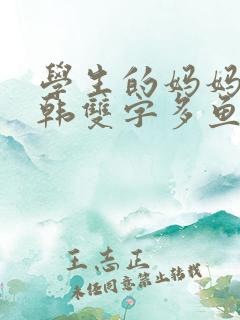 學生的妈妈
韩雙字多鱼
王志正
未经同意禁止转载